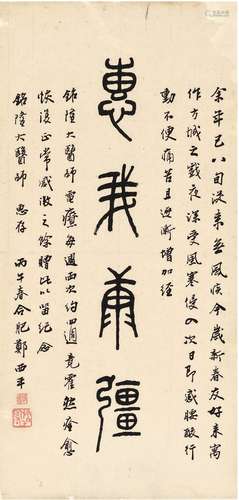 惠我康彊
余年已八旬從來無風疾今歲新春友好來寓
作方城之戲夜深受風寒侵入次日即感腰酸行
動不便痛苦且逐漸增加經
銘隆大醫師電療每週兩次約四週竟霍然痊愈
恢復正常感激之餘贈此以留紀念
銘隆大醫師 惠存 丙午春合肥鄭西平